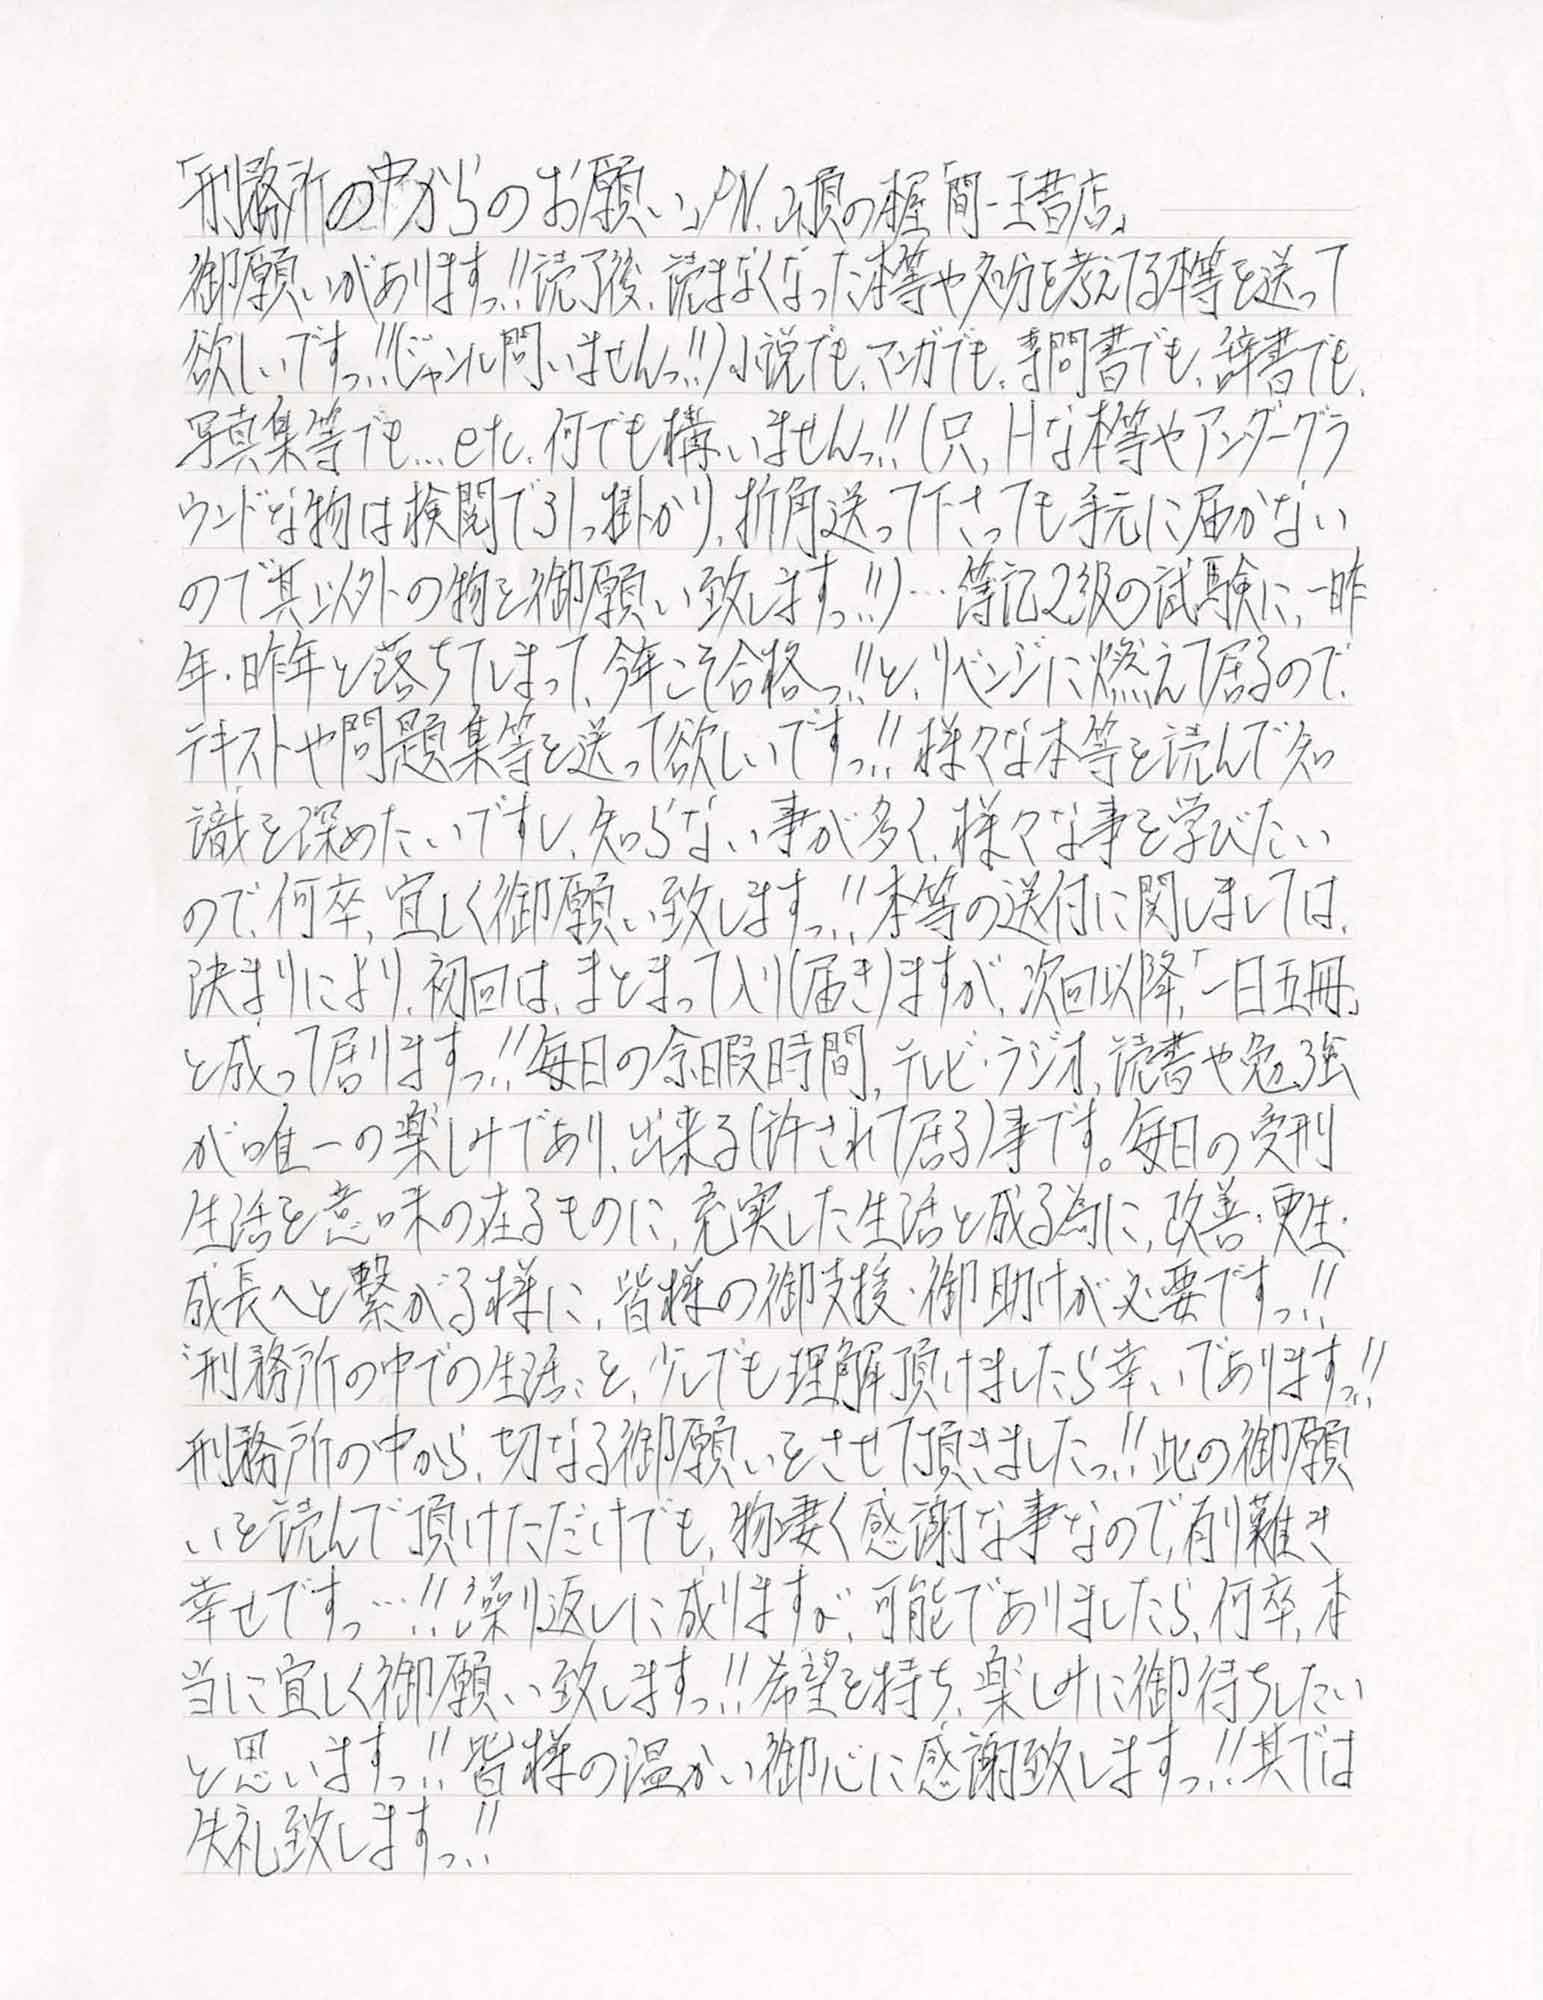 「刑務所の中からのお願い」PN.山頂の本屋「間一王書店」
御願いがありますっ!!読了後、読まなくなった本等や処分を考えてる本等を送って
欲しいですっ!!(ジャンル問いませんっ!!)小説でも、マンガでも、専問書でも、辞書でも、
写真集等でも…etc.何でも構いませんっ!!(只、Hな本等やアンダーグラ
ウンドな物は検閲で引っ掛かり、折角送って下さっても手元に届かない
ので其以外の物を御願い致しますっ!!)…簿記2級の試験に、一昨
年・昨年と落ちてしまって、今年こそ合格っ!!と、リベンジに燃えて居るので、
テキストや問題集等を送って欲しいですっ!!様々な本等を読んで知
識を深めたいですし、知らない事が多く、様々な事を学びたい
ので、何卒、宜しく御願い致しますっ!!本等の送付に関しましては、
決まりにより、初回は、まとまって入り(届き)ますが、次回以降、「一日五冊」
と成って居りますっ!!毎日の余暇時間、テレビ・ラジオ、読書や勉強
が唯一の楽しみであり、出来る(許されて居る)事です。毎日の受刑
生活を意味の在るものに、充実した生活と成る為に、改善・更生・
成長へと繋がる様に、皆様の御支援・御助けが必要ですっ!!
〝刑務所の中での生活〟を、少しでも理解頂けましたら幸いでありますっ!!
刑務所の中から、切なる御願いをさせて頂きましたっ!!此の御願
いを読んで頂けただけでも、物凄く感謝な事なので、有り難き
幸せですっ…!!繰り返しに成りますが、可能でありましたら、何卒、本
当に宜しく御願い致しますっ!!希望を持ち、楽しみに御待ちしたい
と思いますっ!!皆様の温かい御心に感謝致しますっ!!其では
失礼致しますっ!!